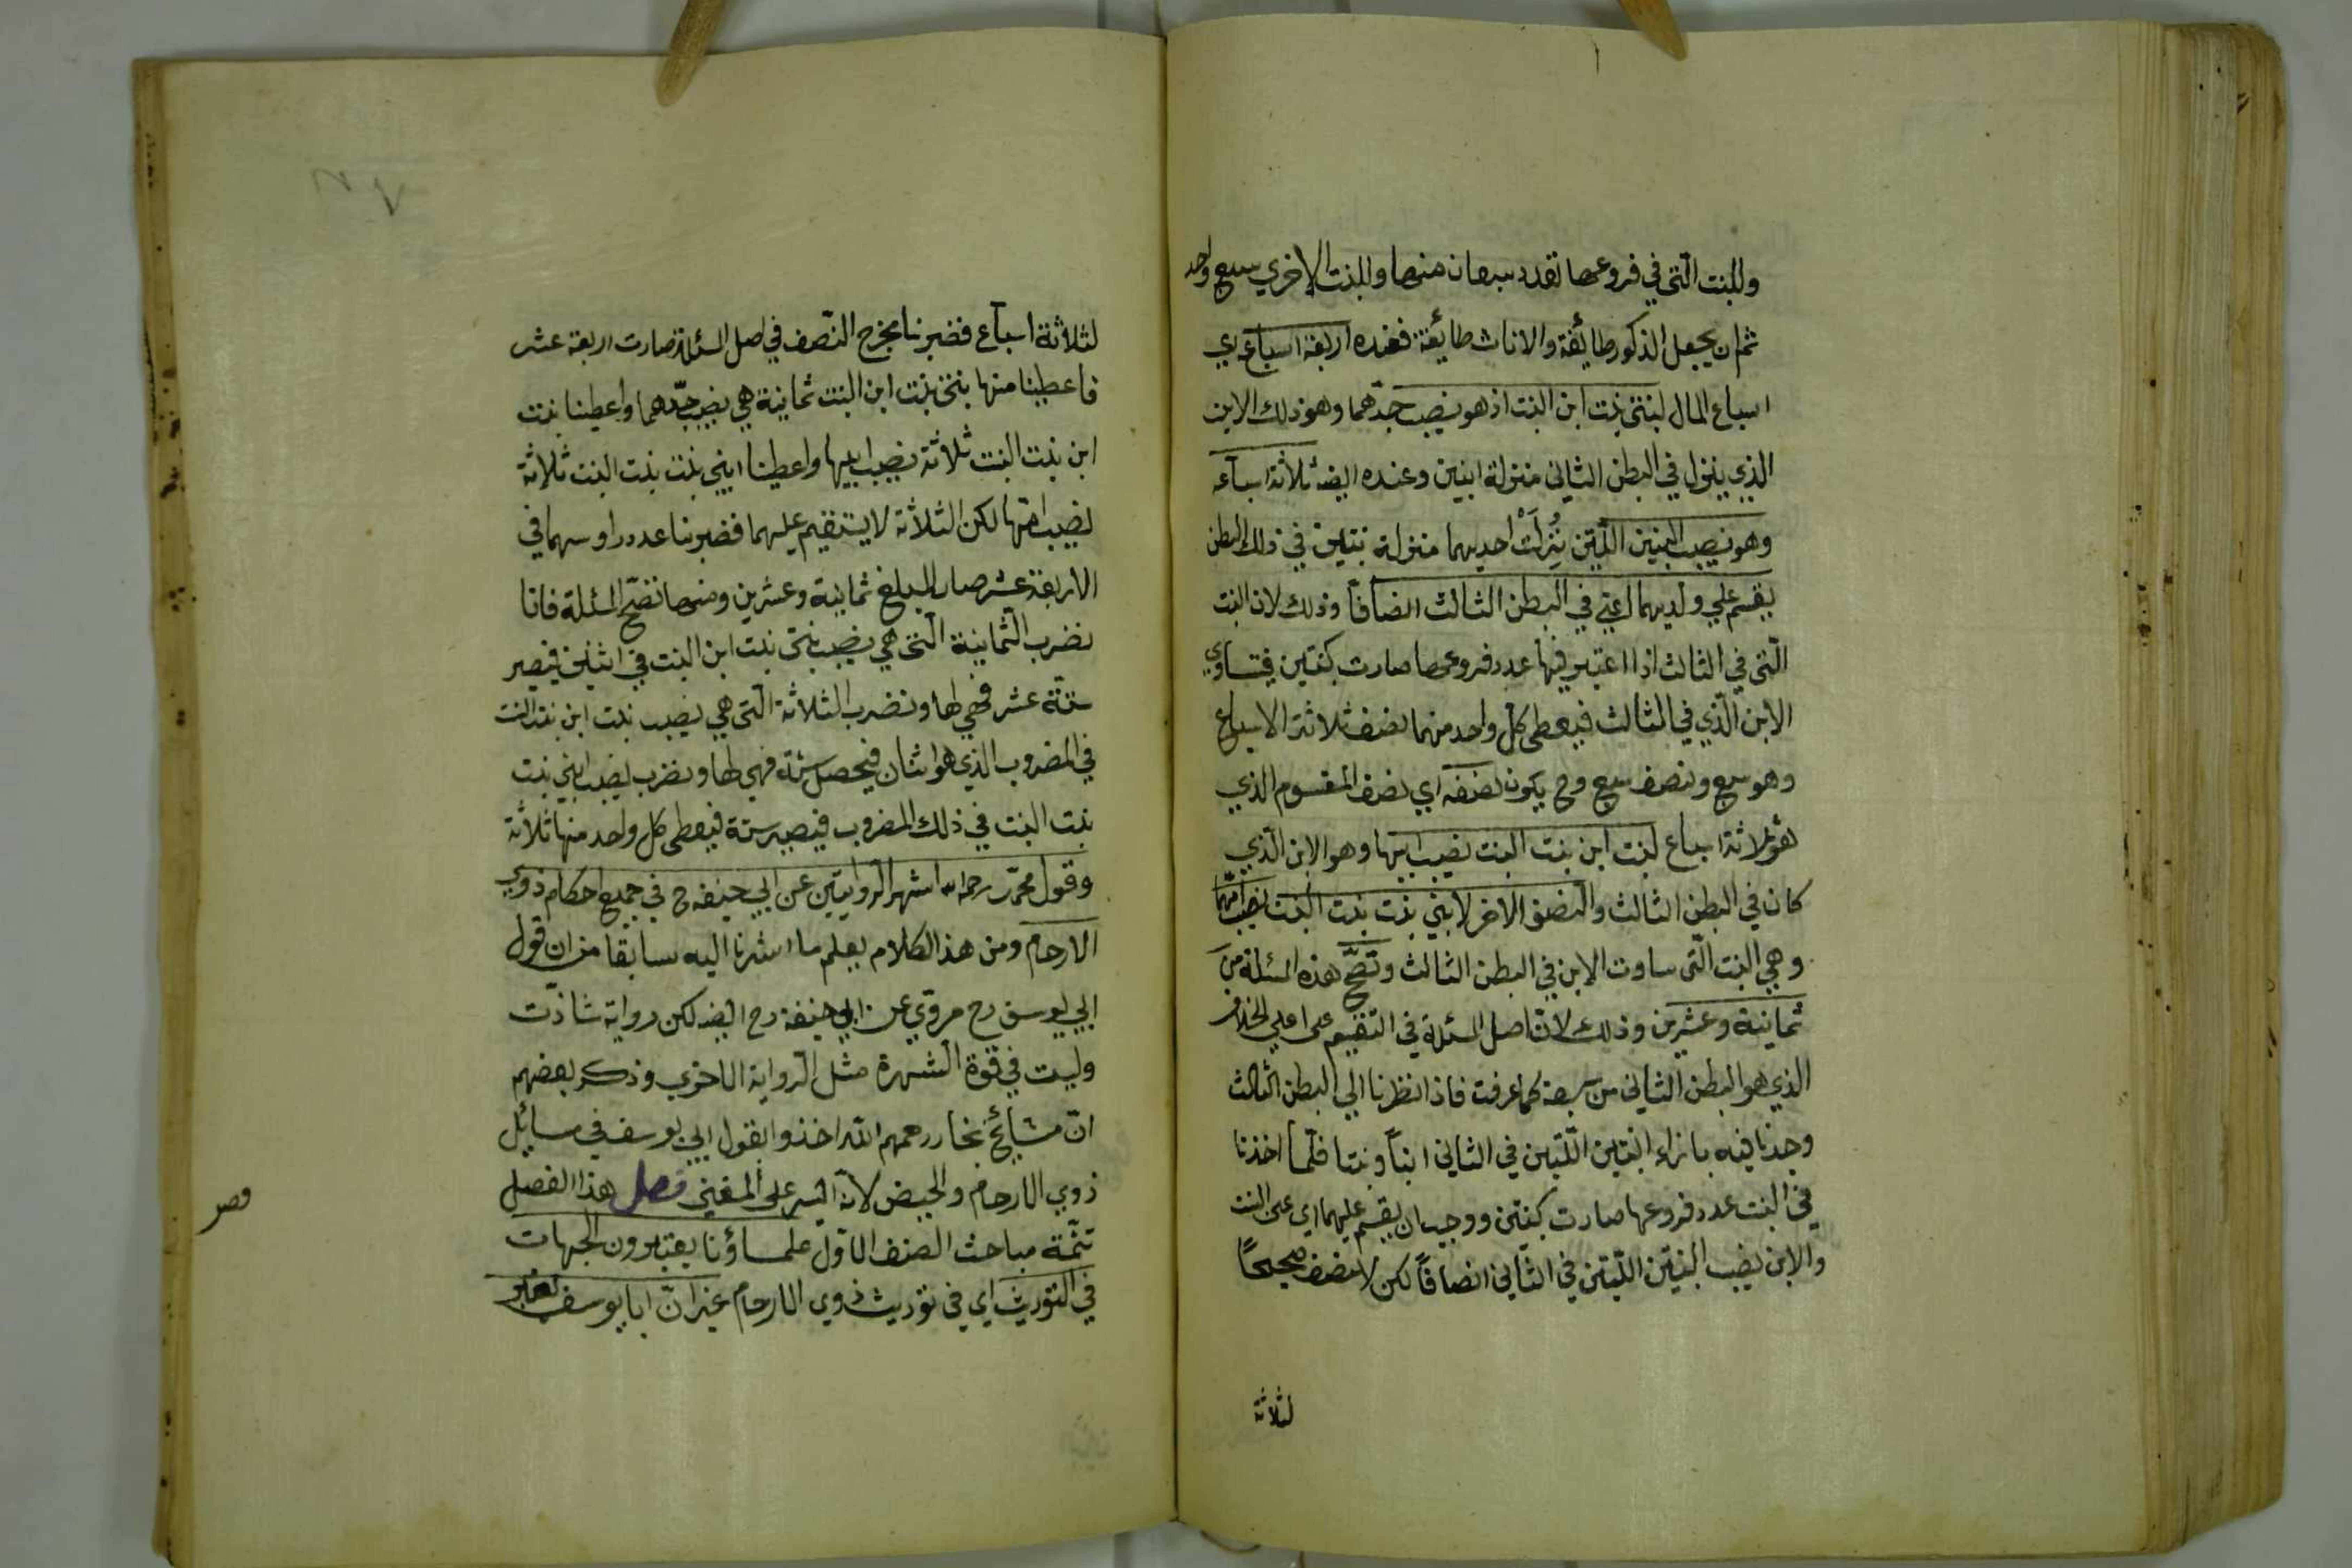 وللبنت الّتى في فروعها تعدد سبعان منها وللبنت الاخري سبع واحد
ثم ان يجعل الذكور طائفة والاناث طايفة فعنده اربعة اسباع اي
اسباع المال لبنتى بنت ابن البنت اذ هو نصيب جدّهما وهو ذلك الابن
الذي ينزل في البطن الثاني منزلة ابنين وعنده ايضه ثلاثة اسباعه
وهو نصيب البنتين اللّتين نُزِلَتْ احديهما منزلة بنتين في ذلك البطن
يقسم علي ولديهما اعني في البطن الثالث انصافاً وذلك لان البنت
الّتى في الثالث اذا اعتبر فيها عدد فروعها صارت كبنتين فتساوي
الابن الّذي في الثالث فيعطى كلّ واحد منهما نصف ثلاثة الاسباع
وهو سبع ونصف سبع وح يكون نصفه اي نصف المقسوم الذي
هو ثلاثة اسباع لبنت ابن بنت البنت نصيب ابيها وهو الابن الّذي
كان في البطن الثالث والنصف الاخر لابني بنت بنت البنت نصيب امّهما
وهي البنت الّتى ساوت الابن في البطن الثالث وتصحّ هذه المسئلة من
ثمانية وعشرين وذلك لانّ اصل المسئلة في التقسيم على اعلي الخلاف
الذي هو البطن الثاني من سبعة كما عرفت فاذا نظرنا الي البطن الثالث
وجدنا فيه بازاء البنتين اللّتين في الثاني ابناً وبنتا فلّما اخذنا
في البنت عدد فروعها صارت كبنتين ووجب ان يقسم عليهما اي على البنت
والابن نصيب البنتين اللّتين في الثّاني انصافاً لكن لا نصف صحيحًا
لثلاثة
لثلاثة اسباع فضربنا مخرج النّصف في اصل المسئلة صارت اربعة عشر
فاعطينا منها بنتى بنت ابن البنت ثمانية هي نصيب جدّهما واعطينا بنت
ابن بنت البنت ثلاثة نصيب ابيها واعطينا ابني بنت بنت البنت ثلاثة
نصيب امّها لكن الثلاثة لا يستقيم عليهما فضربنا عدد راوسهما في
الاربعة عشر صار المبلغ ثمانية وعشرين ومنها تصحّ المسئلة فانا
نضرب الثمانية الّتى هي نصيب بنتى بنت ابن البنت في اثنين فيصير
ستّة عشر فهي لها ونضرب الثلاثة الّتى هي نصيب بنت ابن بنت البنت
في المضروب الذي هو اثنان فيحصل ستة فهي لها ونضرب نصيب ابني بنت
بنت البنت في ذلك المضروب فيصير ستة فيعطى كل واحد منها ثلاثة
وقول محمّد رحمه الله اشهر الروايتين عن ابي حنيفه ح في جميع احكام ذوي
الارحام ومن هذا الكلام يعلم ما اشرنا اليه سابقا من ان قول
ابي يوسف رح مروّي عن ابي حنيفة رح ايضه لكن رواية شاذّت
وليست في قوّة الشهرة مثل الرّواية الاخري وذكر بعضهم
انّ مشائخ بخارا رحمهم الله اخذوا بقول ابي يوسف في مسائل
ذوي الارحام والحيض لانّه ايسر على المفتي فصل هذا الفصل
تتمّة مباحث الصنف الاوّل علماؤنا يعتبرون الجهات
في التوريث اي في توريث ذوي الارحام غير انّ ابا يوسف يعتبر
فصر